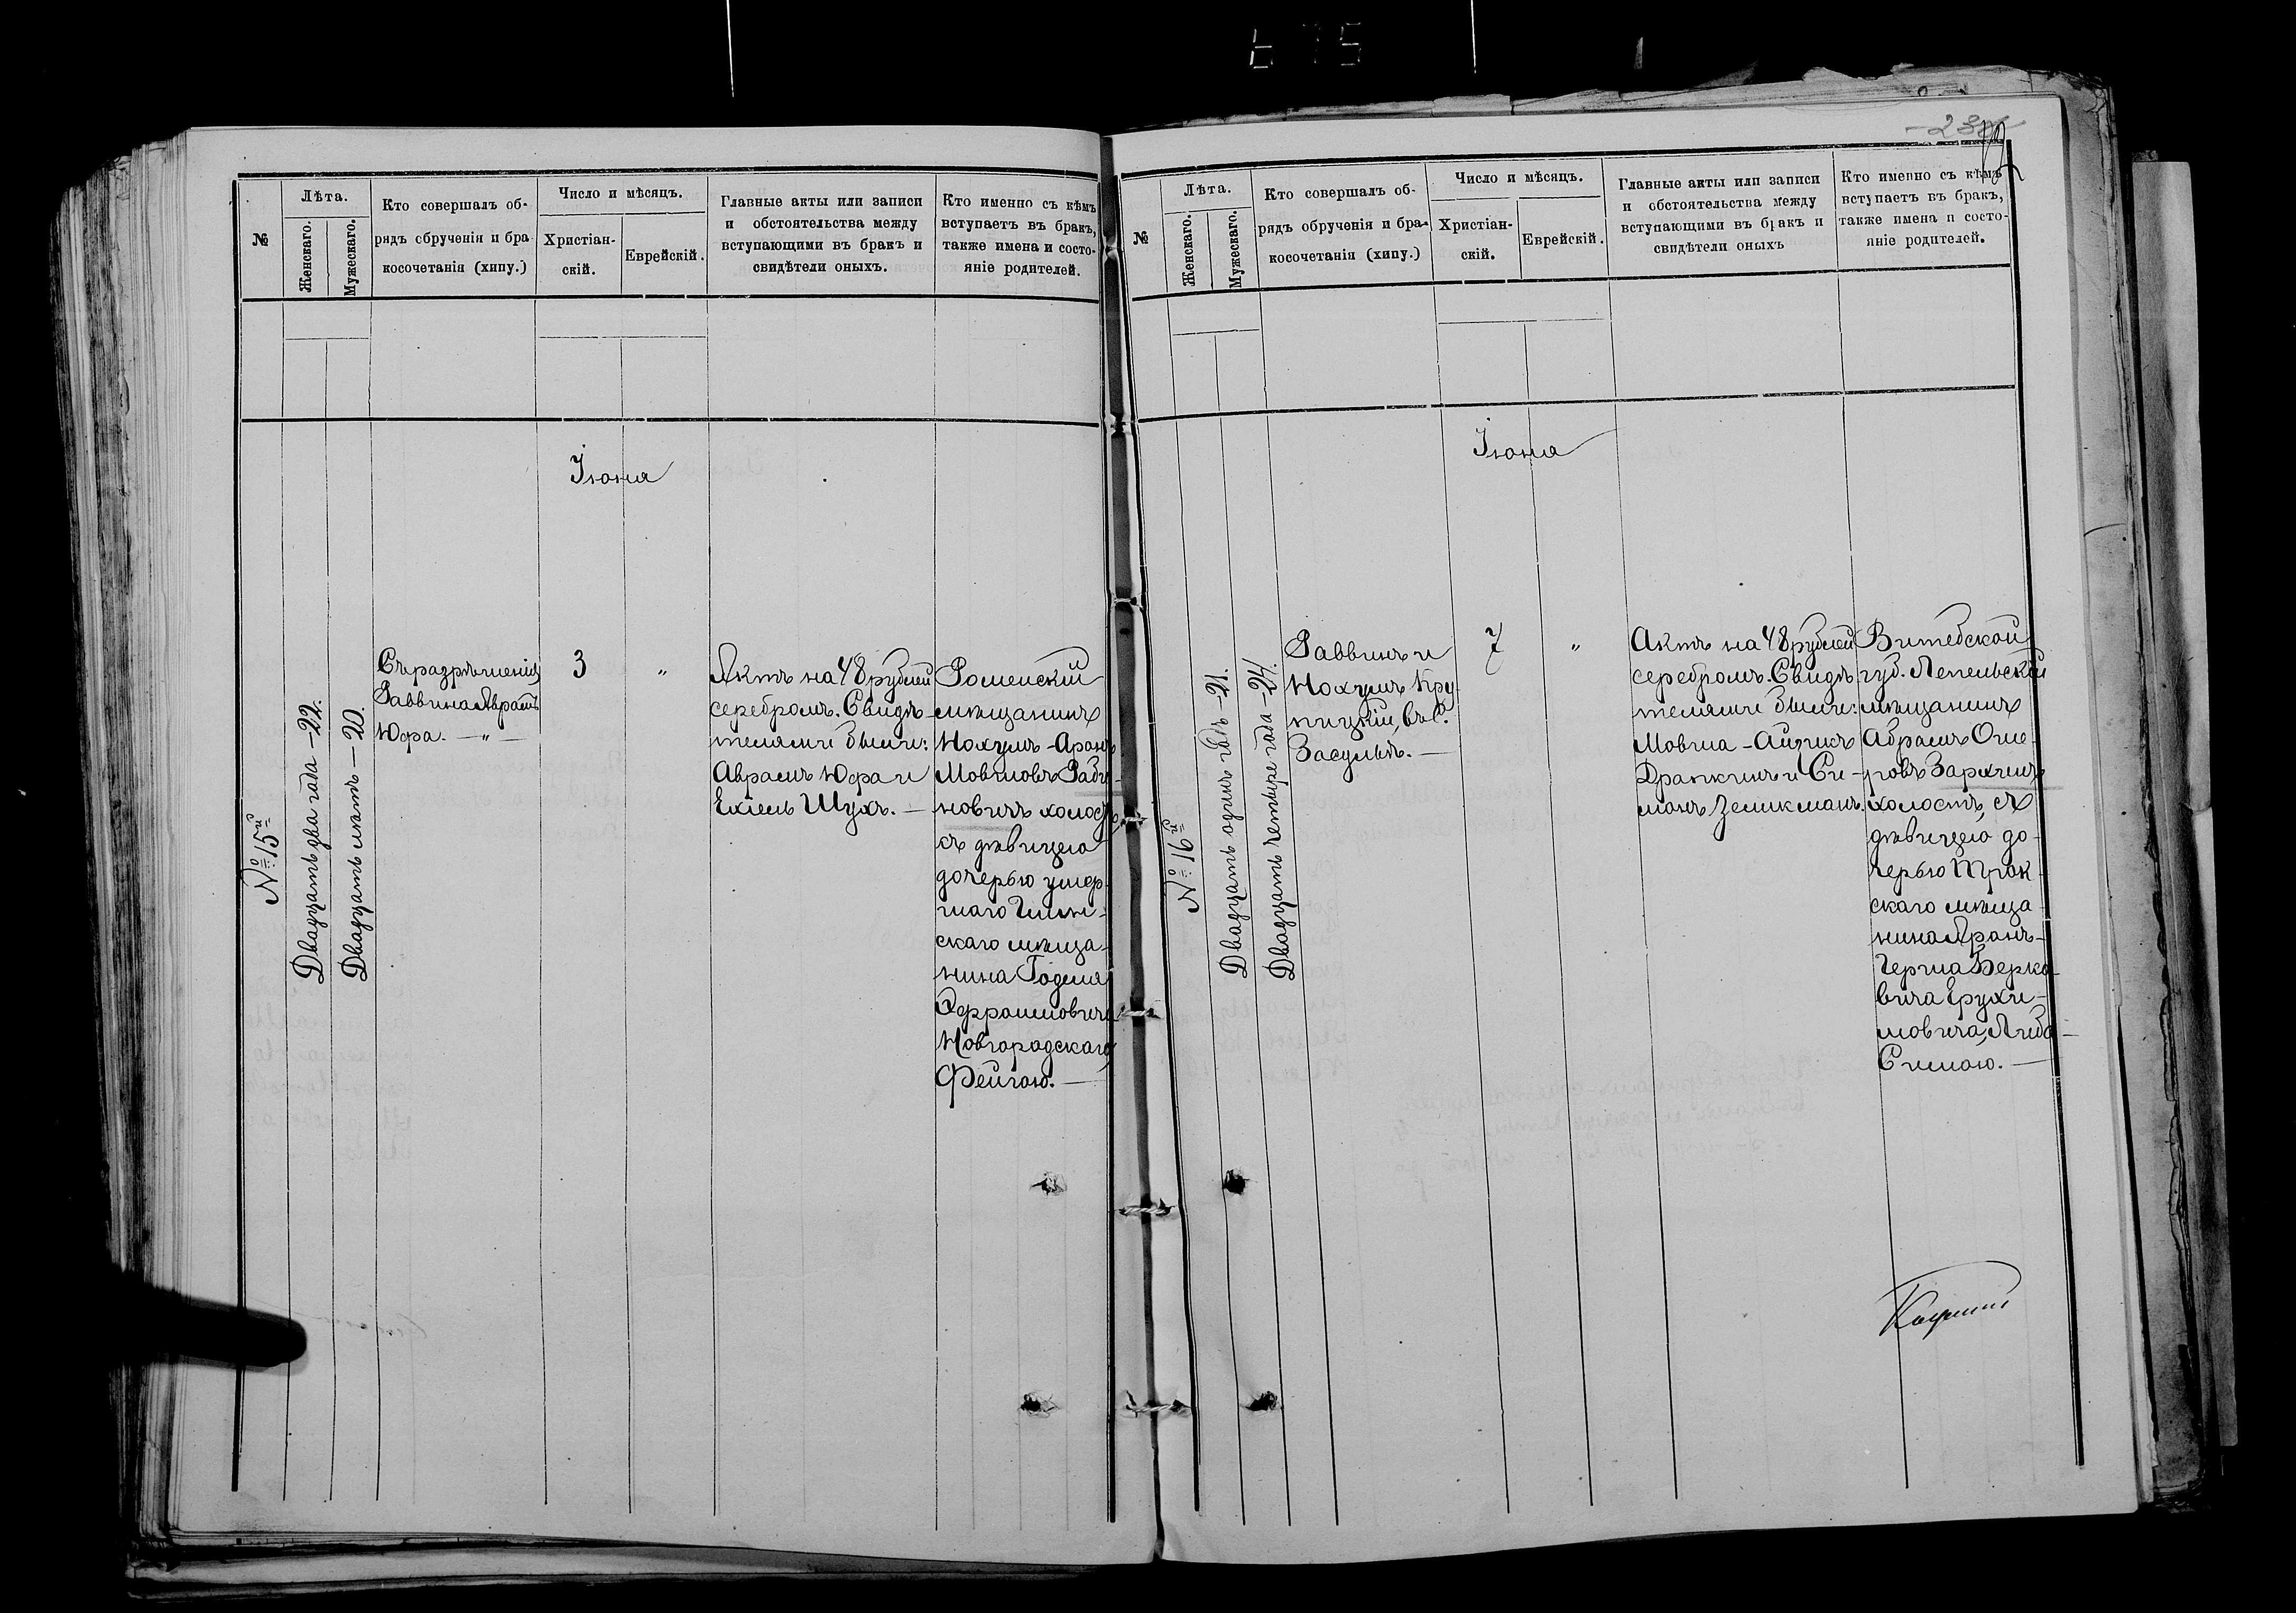 №
Лѣта.
Женскаго.
Мужескаго.
Кто совершалъ об-
рядъ обрученія и бра
косочетанія (хипу.)
Число и мѣсяцъ.
Христіан-
скій.
Еврейскій.
Главные акты или записи
и обстоятельства между
вступающими въ бракъ и
свидѣтели оныхъ.
Кто именно съ кѣмъ
вступаетъ въ бракъ,
также имена и состо-
яніе родителей.
Іюня
№ 15й
Двадцать два года - 22.
Двадцать лѣтъ - 20.
Съ разрѣшенія
Раввина Авраамъ
Юфа. — „ —
3
„
Актъ на 48 рублей
серебромъ. Свидѣ-
телями были:
Аврамъ Юфа и
Ехіель Шухъ. —
Роменскій
мѣщанинъ
Нохумъ-Аронъ
Мовшовъ Раби-
новичъ холостъ,
съ дѣвицею
дочерью умер-
шаго
скаго мѣща-
нина Годеля
Эфроимовича
Новгородскаго
Фейгою. —
№
Лѣта.
Женскаго.
Мужескаго.
Кто совершалъ об-
рядъ обрученія и бра-
косочетанія (хипу.)
Число и мѣсяцъ.
Христіан-
скій.
Еврейскій.
Главные акты или записи
и обстоятельства между
вступающими въ бракъ и
свидѣтели оныхъ
Кто именно съ кѣмъ
вступаетъ въ бракъ,
также имена и состо-
яніе родителей.
Іюня
№ 16й
Двадцать одинъ годъ - 21.
Двадцать четыре года - 24.
Раввинъ и
Нохумъ Кру-
пицкій, въ С.
Засульѣ. —
7
„
Актъ на 48 рублей
серебромъ. Свидѣ-
телями были:
Мовша-Айзикъ
Драпкинъ и Си-
монъ Зеликманъ.
Витебской
губ. Лепельскій
мѣщанинъ
Абрамъ Оше-
ровъ Зархинъ
холостъ, съ
дѣвицею до-
черью Трок-
скаго мѣща-
нина Аронъ-
Герша Берко-
вича Ерухи-
мовича, Либа-
Симою. —